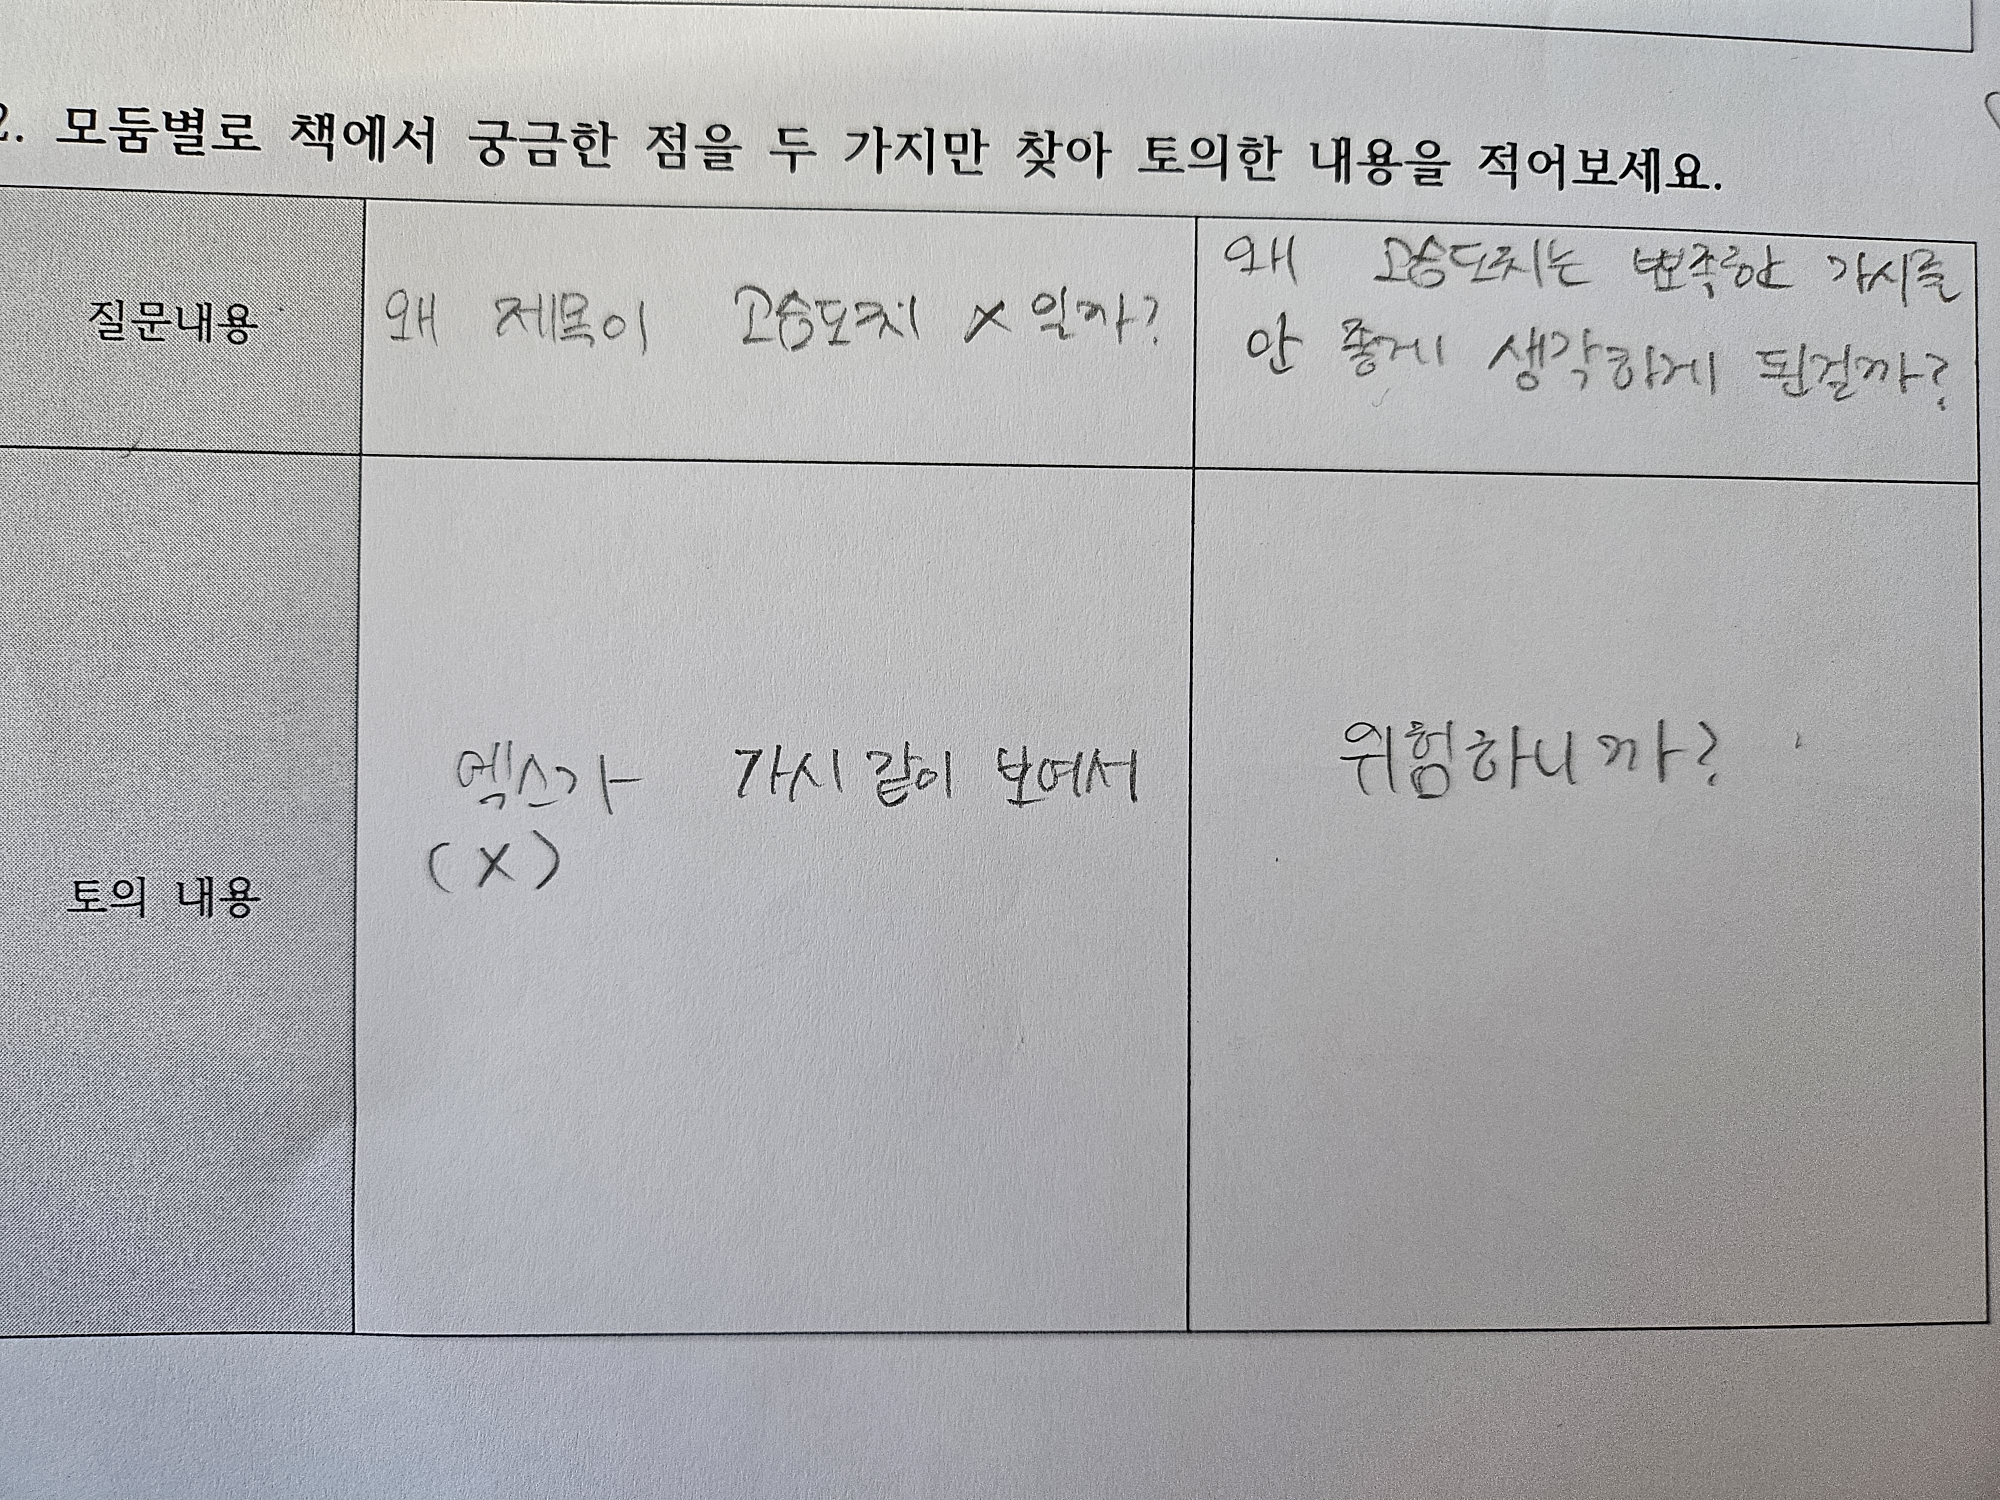 2. 모둠별로 책에서 궁금한 점을 두 가지만 찾아 토의한 내용을 적어보세요.
질문내용
왜 제목이 고슴도치 X 일까?
왜 고슴도치는 뾰족한 가시를
안 좋게 생각하게 된걸까?
토의 내용
엑스가 가시 같이 보여서
(X)
위험하니까?